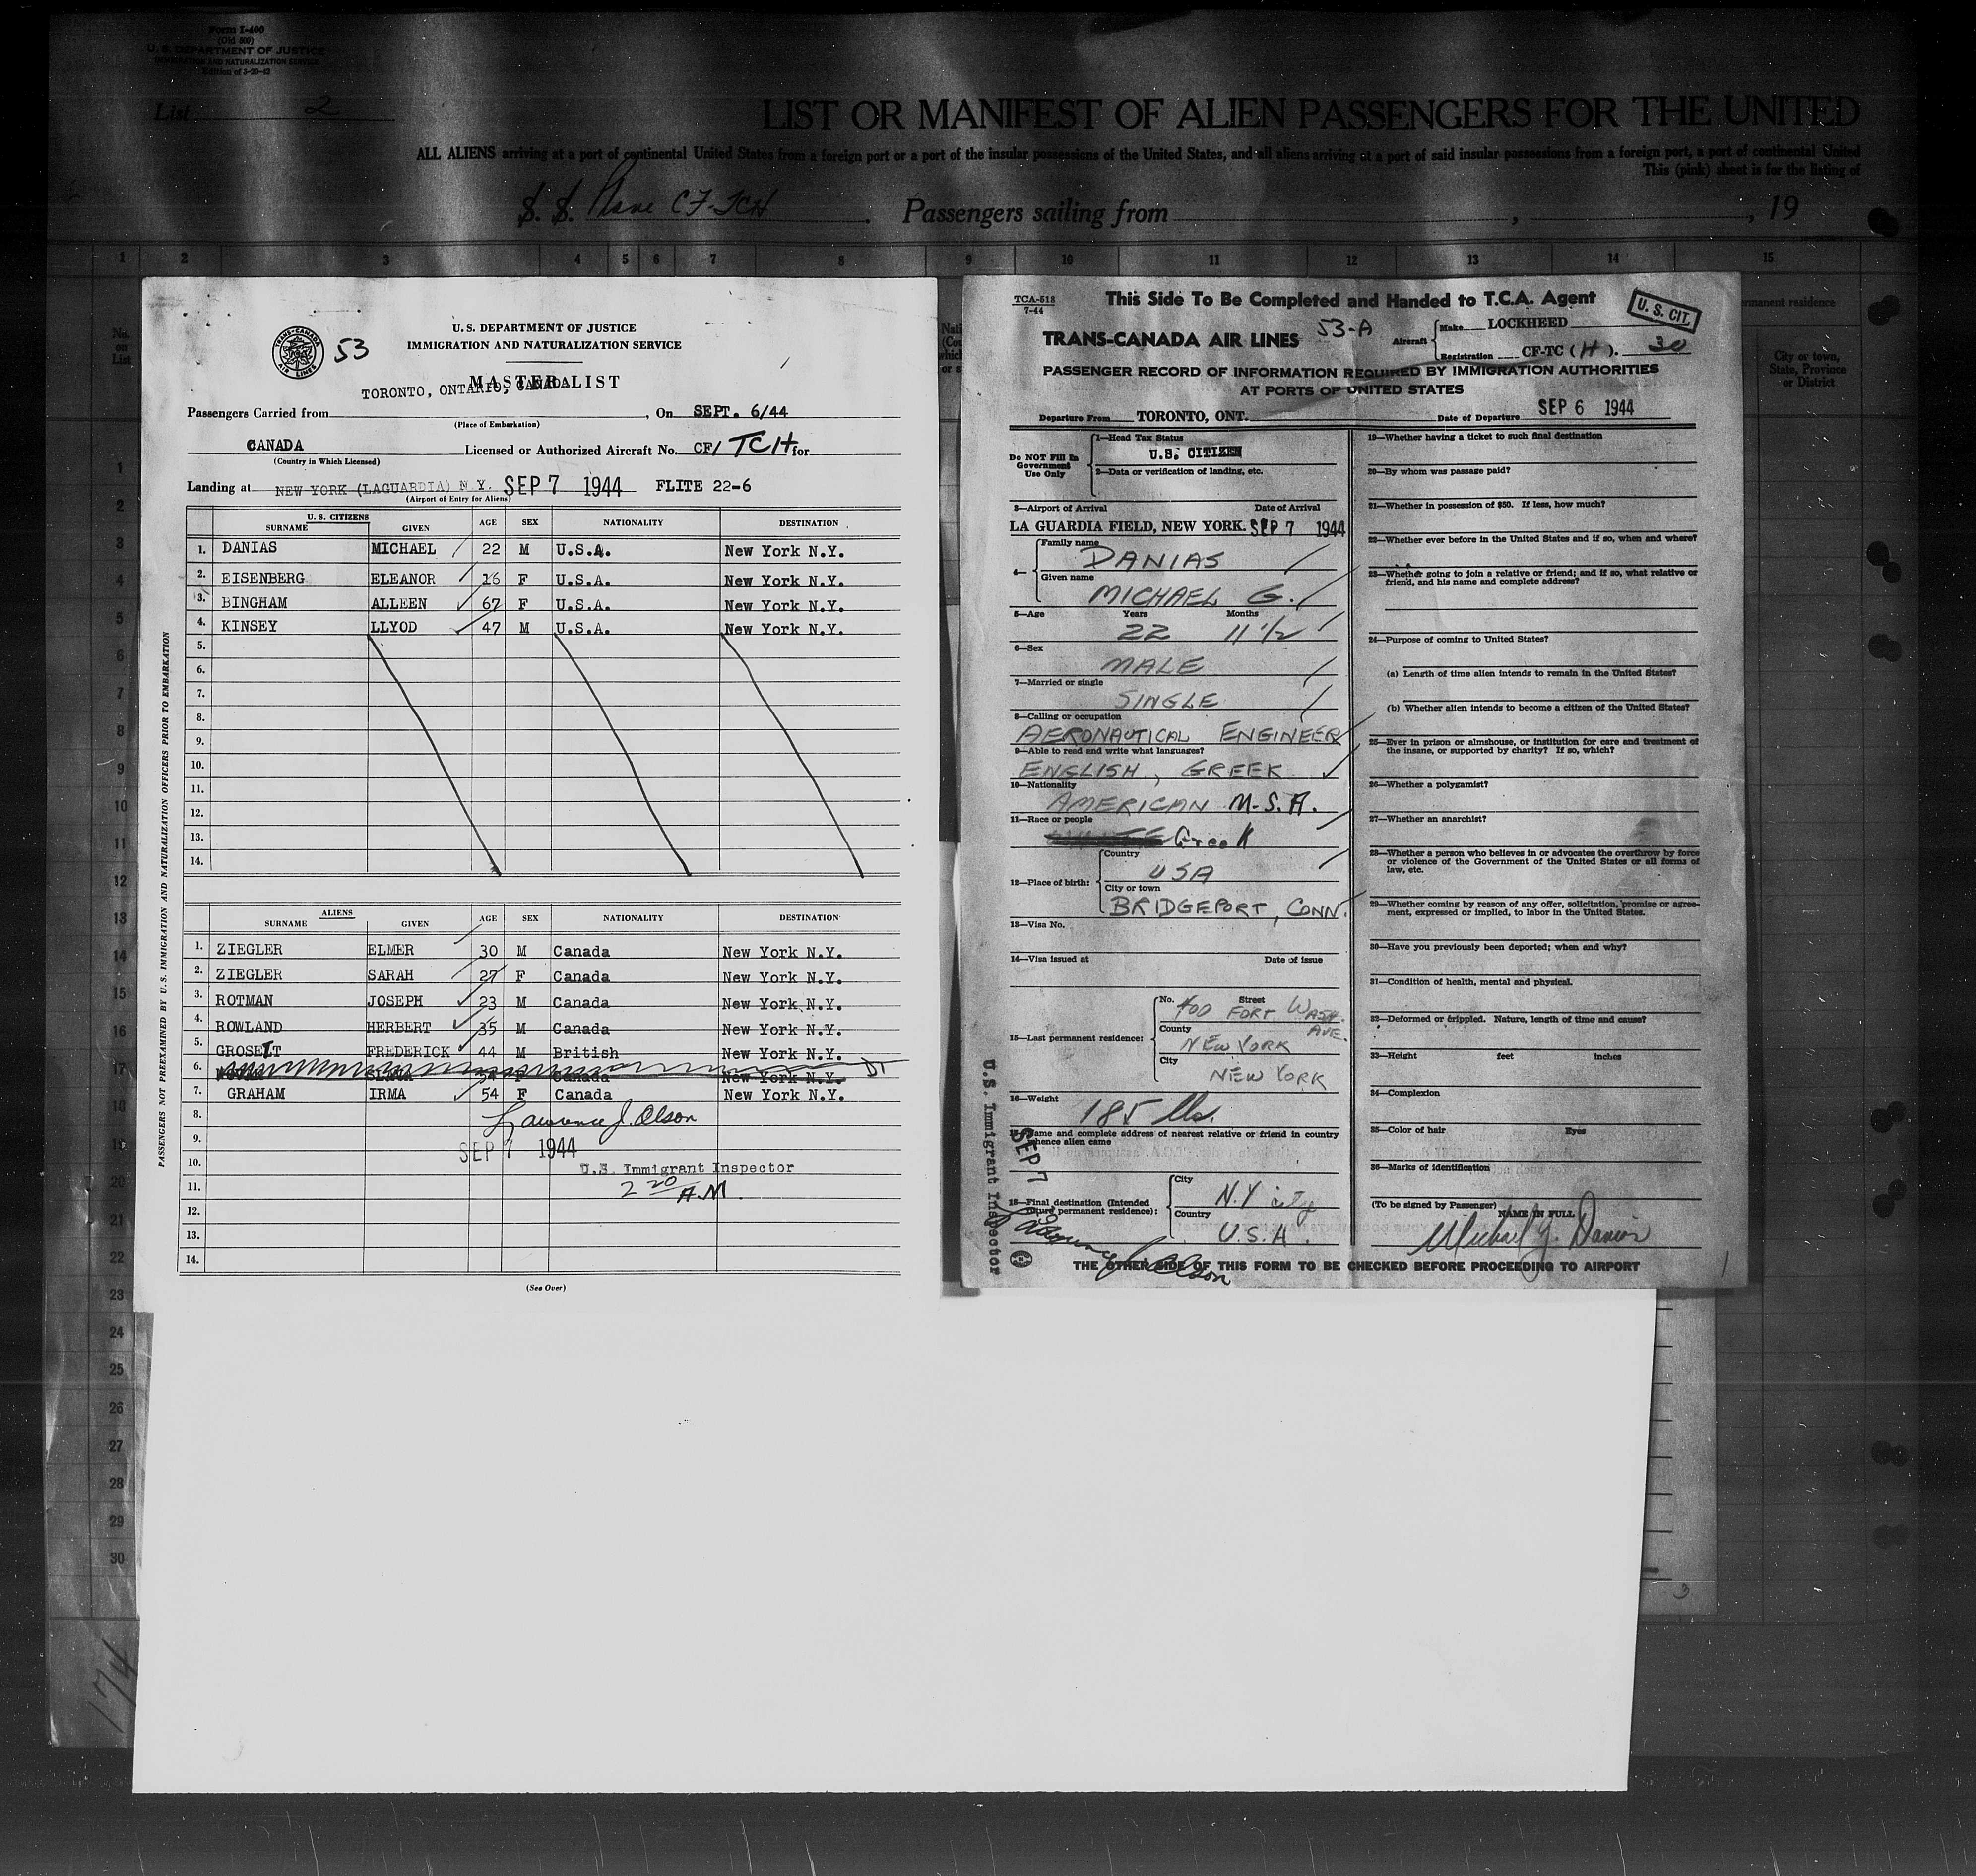 Form I-400
(Old 500)
U. S. DEPARTMENT OF JUSTICE
IMMIGRATION AND NATURALIZATION SERVICE
Edition of 3-20-42
List 2
LIST OR MANIFEST OF ALIEN PASSENGERS FOR THE UNITED
ALL ALIENS arriving at a port of continental United States from a foreign port or a port of the insular possessions of the United States, and all aliens arriving at a port of said insular possessions from a foreign port, a port of continental United
This (pink) sheet is for the listing of
S. S. Plane CF-TCH Passengers sailing from , , 19
1 2 3 4 5 6 7 8 9 10 11 12 13 14 15
No.
on
List
permanent residence
City or town,
State, Province
or District
1
2
3
4
5
6
7
8
9
10
11
12
13
14
15
16
17
18
19
20
21
22
23
24
25
26
27
28
29
30
174
3
TRANS-CANADA AIR LINES
53
U. S. DEPARTMENT OF JUSTICE
IMMIGRATION AND NATURALIZATION SERVICE
MASTER LIST
TORONTO, ONTARIO, CANADA
Passengers Carried from , On SEPT. 6/44
(Place of Embarkation)
CANADA Licensed or Authorized Aircraft No. CF/ TCH for
(Country in Which Licensed)
Landing at NEW YORK (LAGUARDIA) N.Y. SEP 7 1944 FLITE 22-6
(Airport of Entry for Aliens)
U. S. CITIZENS
SURNAME GIVEN AGE SEX NATIONALITY DESTINATION
1. DANIAS MICHAEL 22 M U.S.A. New York N.Y.
2. EISENBERG ELEANOR 16 F U.S.A. New York N.Y.
3. BINGHAM ALLEEN 67 F U.S.A. New York N.Y.
4. KINSEY LLYOD 47 M U.S.A. New York N.Y.
5.
6.
7.
8.
9.
10.
11.
12.
13.
14.
ALIENS
SURNAME GIVEN AGE SEX NATIONALITY DESTINATION
1. ZIEGLER ELMER 30 M Canada New York N.Y.
2. ZIEGLER SARAH 27 F Canada New York N.Y.
3. ROTMAN JOSEPH 23 M Canada New York N.Y.
4. ROWLAND HERBERT 35 M Canada New York N.Y.
5. GROSEIT FREDERICK 44 M British New York N.Y.
6. F Canada New York N.Y.
7. GRAHAM IRMA 54 F Canada New York N.Y.
8. Lawrence J. Olson
9. SEP 7 1944
10. U.S. Immigrant Inspector
11. 2 20 A.M.
12.
13.
14.
(See Over)
PASSENGERS NOT PREEXAMINED BY U. S. IMMIGRATION AND NATURALIZATION OFFICERS PRIOR TO EMBARKATION
TCA-518
7-44
This Side To Be Completed and Handed to T.C.A. Agent
U. S. CIT.
TRANS-CANADA AIR LINES 53-A
Aircraft
Make LOCKHEED
Registration CF-TC (H). 30
PASSENGER RECORD OF INFORMATION REQUIRED BY IMMIGRATION AUTHORITIES
AT PORTS OF UNITED STATES
Departure From TORONTO, ONT. Date of Departure SEP 6 1944
Do NOT Fill In
Government
Use Only
1—Head Tax Status
U.S. CITIZEN
2—Data or verification of landing, etc.
3—Airport of Arrival Date of Arrival
LA GUARDIA FIELD, NEW YORK. SEP 7 1944
4—
Family name
DANIAS
Given name
MICHAEL G.
5—Age Years Months
22 11 1/2
6—Sex
MALE
7—Married or single
SINGLE
8—Calling or occupation
AERONAUTICAL ENGINEER
9—Able to read and write what languages?
ENGLISH, GREEK
10—Nationality
AMERICAN U.S.A.
11—Race or people
Greek
12—Place of birth:
Country
USA
City or town
BRIDGEPORT, CONN.
13—Visa No.
14—Visa issued at Date of issue
15—Last permanent residence:
No. Street
400 FORT WASH. AVE.
County
NEW YORK
City
NEW YORK
16—Weight
185 lbs.
17—Name and complete address of nearest relative or friend in country
whence alien came
18—Final destination (Intended
future permanent residence):
City
N.Y. city
Country
U.S.A.
SEP 7
Lawrence J. Olson
U.S. Immigrant Inspector
19—Whether having a ticket to such final destination
20—By whom was passage paid?
21—Whether in possession of $50. If less, how much?
22—Whether ever before in the United States and if so, when and where?
23—Whether going to join a relative or friend; and if so, what relative or
friend, and his name and complete address?
24—Purpose of coming to United States?
(a) Length of time alien intends to remain in the United States?
(b) Whether alien intends to become a citizen of the United States?
25—Ever in prison or almshouse, or institution for care and treatment of
the insane, or supported by charity? If so, which?
26—Whether a polygamist?
27—Whether an anarchist?
28—Whether a person who believes in or advocates the overthrow by force
or violence of the Government of the United States or all forms of
law, etc.
29—Whether coming by reason of any offer, solicitation, promise or agree-
ment, expressed or implied, to labor in the United States.
30—Have you previously been deported; when and why?
31—Condition of health, mental and physical.
32—Deformed or crippled. Nature, length of time and cause?
33—Height feet inches
34—Complexion
35—Color of hair Eyes
36—Marks of identification
(To be signed by Passenger) NAME IN FULL
Michael G. Danias
THE OTHER SIDE OF THIS FORM TO BE CHECKED BEFORE PROCEEDING TO AIRPORT